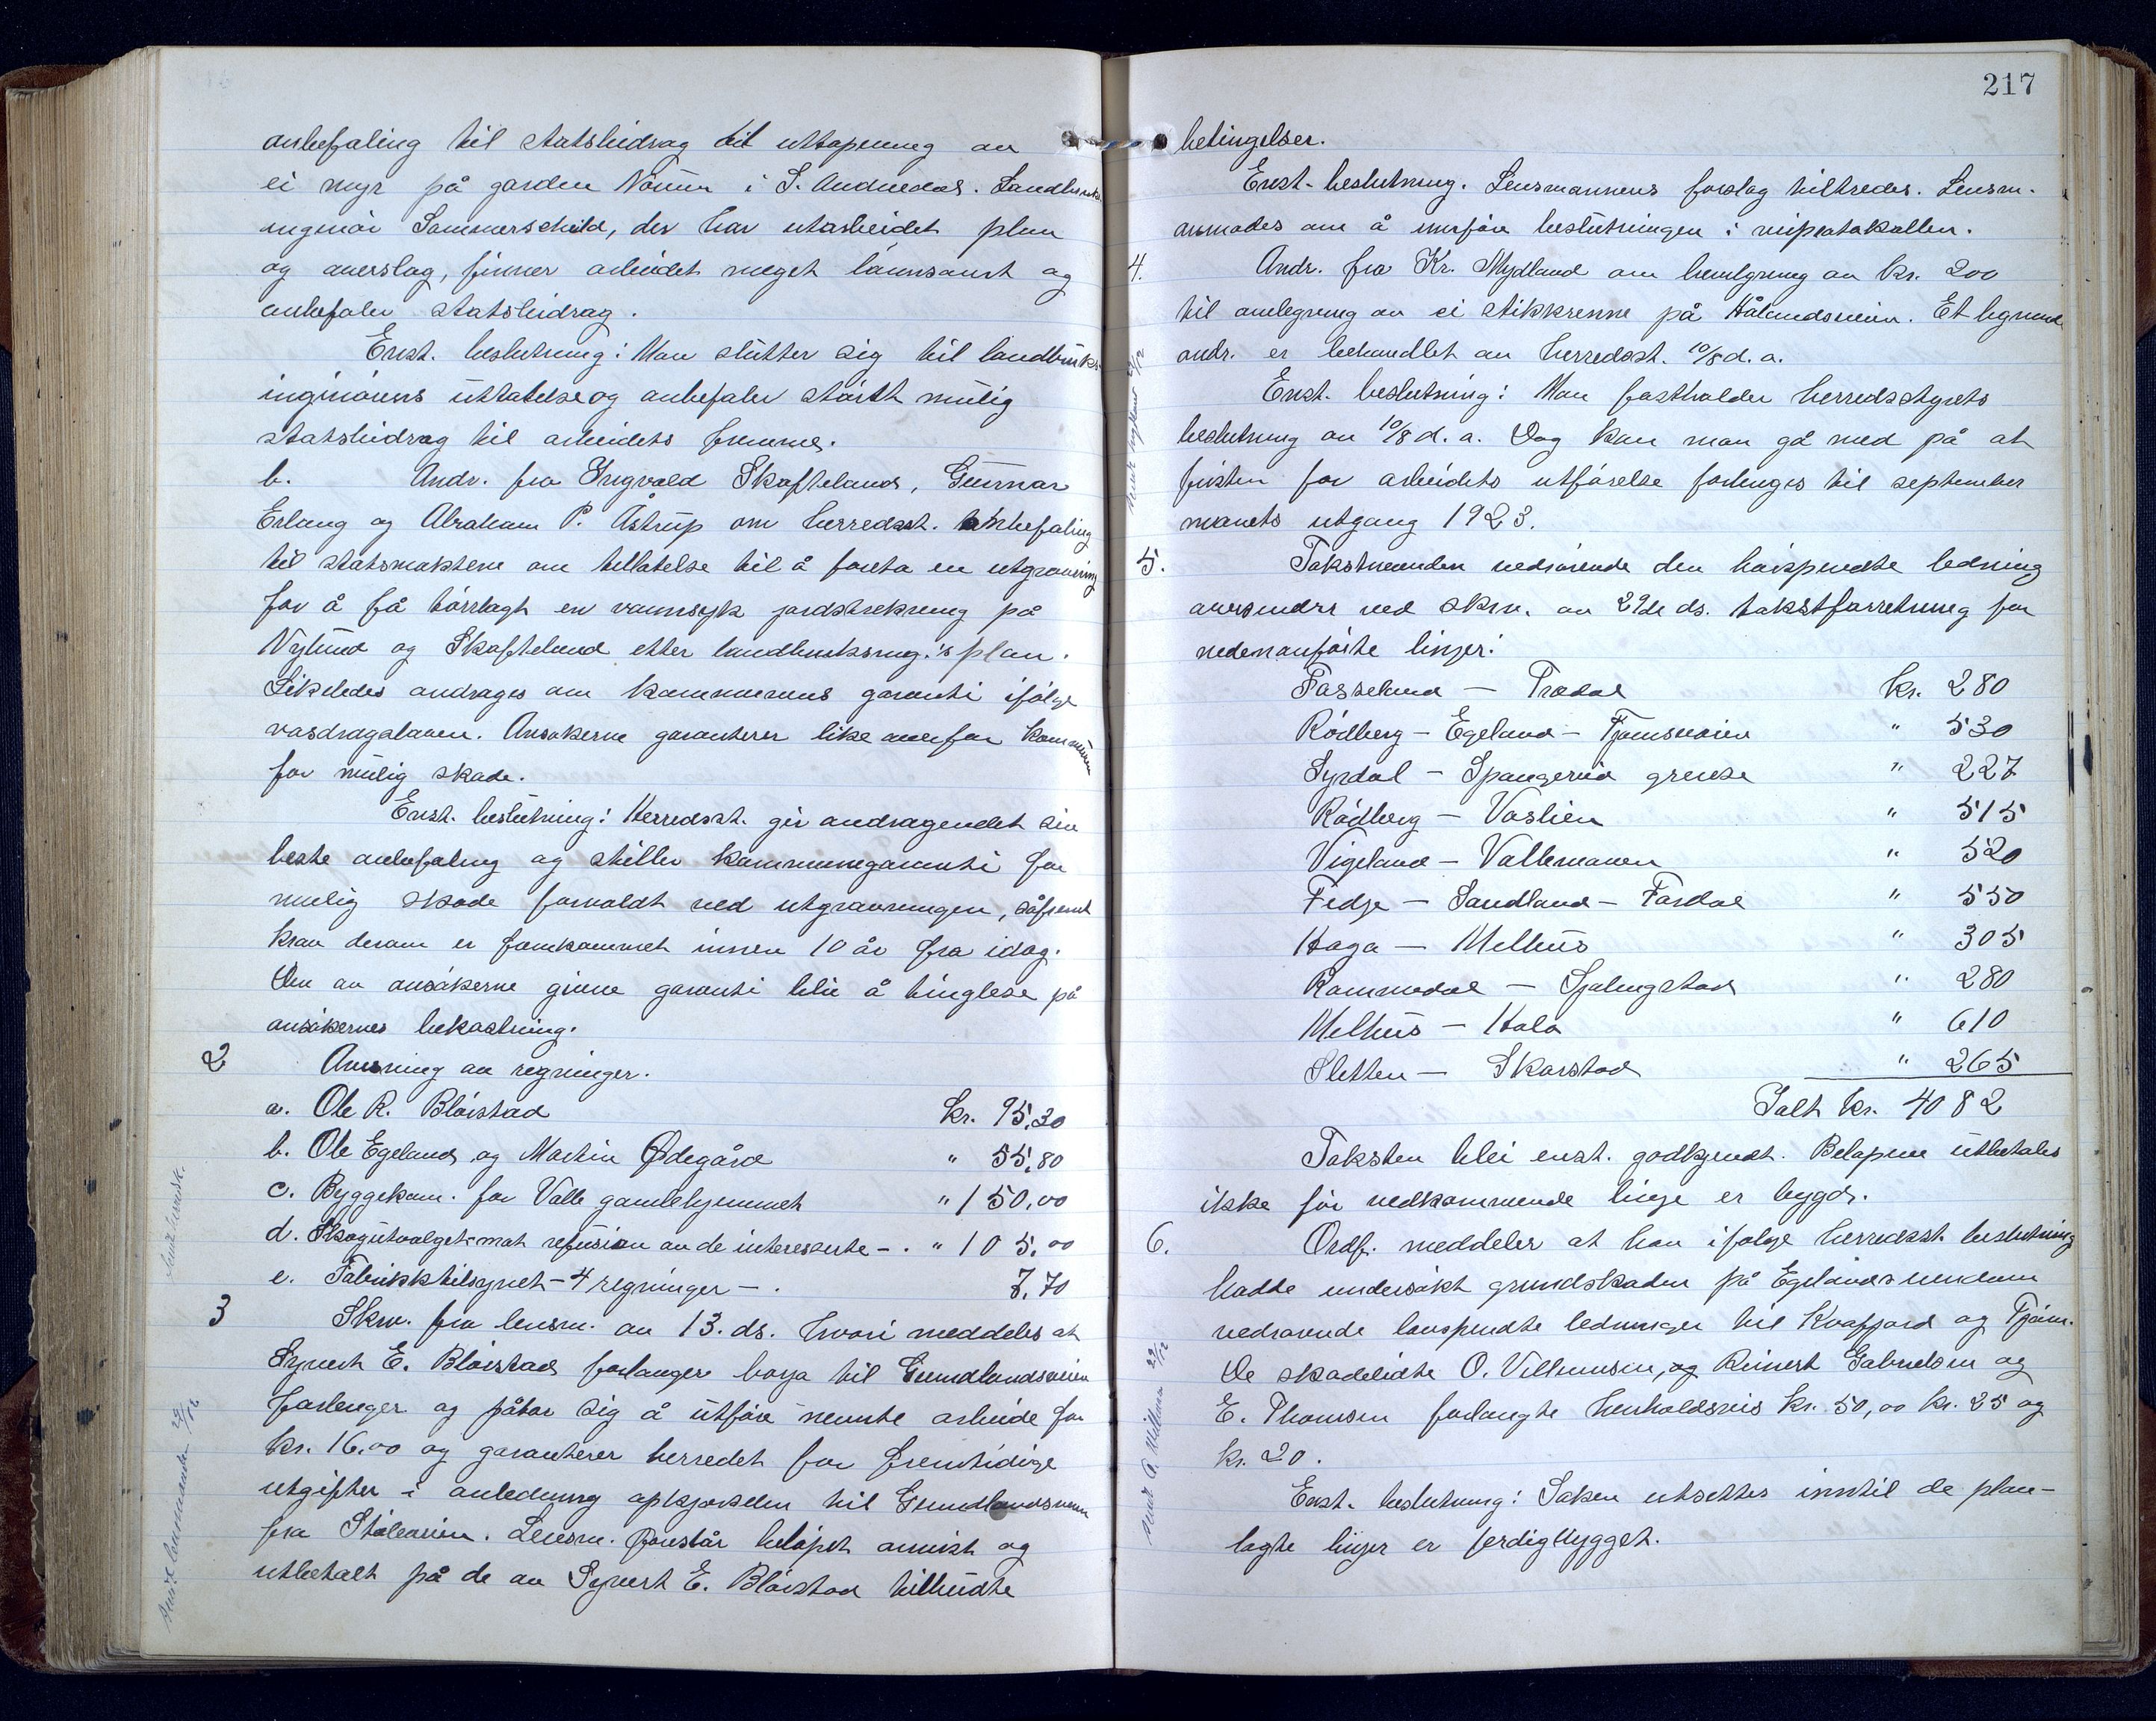 anbefaling til statsbidrag til uttapning av
ei myr på garden Nøme i S. Audnedal. Landbruks
ingeniør Sommerschild, der har utarbeidet plan
og overslag, finner arbeidet meget lønnsomt og
anbefaler statsbidrag.
Enst. beslutning: Man slutter sig til landbruks-
ingeniørens uttalelse og anbefaler størst mulig
statsbidrag til arbeidets fremme.
b. Andr. fra Yngvald Skofteland, Gunnar
Erlang og Abraham P. Åstrup om herredsst. anbefaling
til statsmaktene om tillatelse til å foreta en utgravning
for å få tørrlagt en vannsyk jordstrekning på
Nylund og Skofteland etter landbruksing.'s plan.
Likeledes andrages om kommunens garanti ifølge
vasdragsloven. Ansøkerne garanterer like overfor kommunen
for mulig skade.
Enst. beslutning: Herredsst. gir andragendet sin
beste anbefaling og stiller kommunegaranti for
mulig skade forvoldt ved utgravningen, såfremt
krav derom er fremkommet innen 10 år fra idag.
Den av ansøkerne givne garanti blir å tinglese på
ansøkernes bekostning.
2 Anvisning av regninger.
a. Ole R. Bløistad kr. 95,30
b. Ole Egeland og Martin Ødegård " 55,80
c. Byggekom. for Valle gamlehjemmet " 150,00
d. Skogutvalget mot refusion av de interesserte - . " 105,00
e. Fabrikktilsynet - 4 regninger - . 7,70
3 Skriv. fra lensm. av 13. ds. hvori meddeles at
Syvert E. Bløistad forlanger
forlenger og påtar sig å utføre nevnte arbeide for
kr. 16,00 og garanterer herredet for fremtidige
utgifter i anledning opkjørselen til Grundlandsveien
fra Støleveien. Lensm. foreslår beløpet anvist og
utbetalt på de av Syvert E. Bløistad tilbudte
Sendt lensmannen 29/12
217
betingelser.
Enst. beslutning. Lensmannens forslag tiltredes. Lensm.
anmodes om å innføre beslutningen i veiprotokollen.
4. Andr. fra Kr. Mydland om bevilgning av kr. 200
til omlegning av ei stikkrenne på Hålandsveien. Et lignende
andr. er behandlet av herredsst. 10/8 d. a.
Enst. beslutning: Man fastholder herredsstyrets
beslutning av 10/8 d. a. Dog kan man gå med på at
fristen for arbeidets utførelse forlenges til september
manets utgang 1923.
Sendt Mydland 29/12
5. Takstmenden vedrørende den høispendte ledning
oversender ved skriv. av 29de ds. takstforretning for
nedenanførte linjer:
Fasseland — Trædal kr. 280
Rødberg - Egeland - Tjomsveien " 530
Syrdal - Spangereid grense " 227
Rødberg - Voslien " 515
Vigeland - Vallemoen " 520
Fidje - Sandland - Fardal " 550
Haga - Melhus " 305
Rommedal - Spilingstad " 280
Melhus - Hala " 610
Sletten - Skarstad " 265
Ialt kr. 4082
Taksten blei enst. godkjendt. Beløpene utbetales
ikke før vedkommende linje er bygd.
6. Ordf. meddeler at han ifølge herredsst. beslutning
hadde undersøkt grundskaden på Egelands eiendom
vedrørende lavspendte ledninger til Kvafjord og Tjøm.
De skadelidte O. Villumsen, og Reinert Gabrielsen og
E. Thomsen forlangte henholdsvis kr. 50,00 kr. 25 og
kr. 20.
Enst. beslutning: Saken utsettes inntil de plan-
lagte linjer er ferdigbygget.